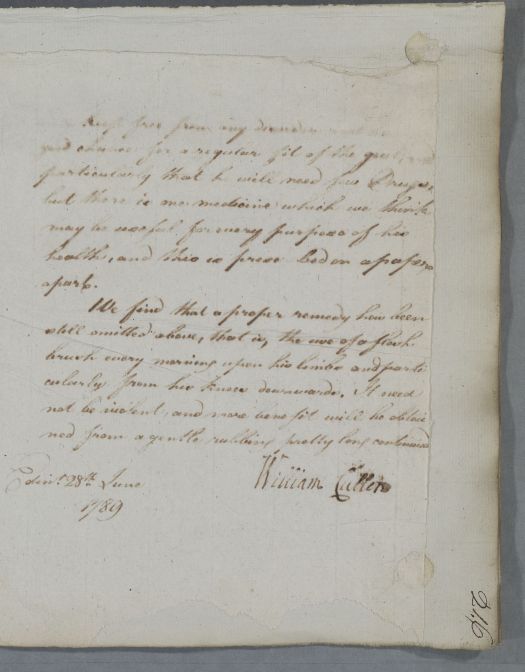 kept free from any disorder
good chance for a regular fit of the gout, and
particularly that he will need few Drugs,
but there is one medicine which we think
may be useful for every purpose of his
health, and this is prescribed on a paper
apart.
We find that a proper remedy has been
still omitted above, that is, the use of a flesh
brush every morning upon his limbs and parti
cularly from his knees downwards. It need
not be violent, and more benefit will be obtai
ned from a gentle rubbing pretty long continued
William Cullen
Edinr. 28th. June
1789
216